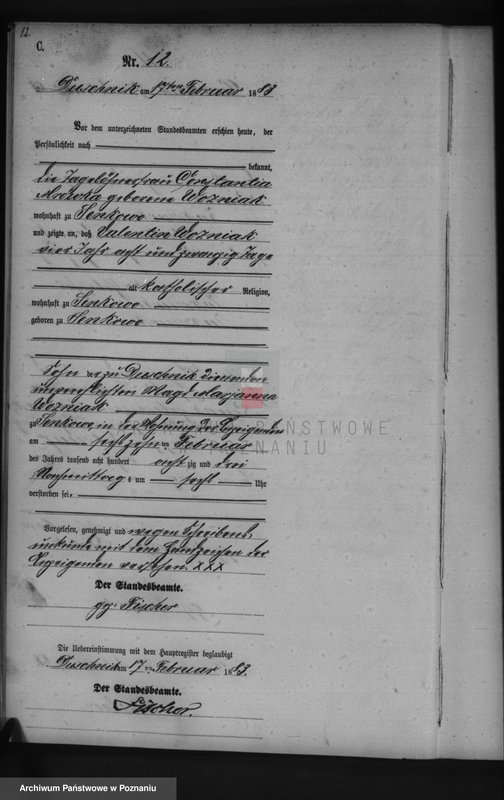 12.
C.
Nr. 12.
Duschnik am 17ten Februar 1883
Vor dem unterzeichneten Standesbeamten erschien heute, der
Persönlichkeit nach
bekannt,
die Tagelöhnerfrau Constantia
geborene Wozniak
wohnhaft zu Senkowo
und zeigte an, daß Valentin Wozniak
vier Jahr acht und zwanzig Tage
alt katholischer Religion,
wohnhaft zu Senkowo
geboren zu Senkowo
Sohn der zu Duschnik dienenden
unverehelichten Magd Maryanna
Wozniak
zu Senkowo, in der Wohnung der Anzeigenden
am sechszehnten Februar
des Jahres tausend acht hundert achtzig und drei
Nachmittags um sechs Uhr
verstorben sei.
Vorgelesen, genehmigt und wegen Schreibens-
unkunde mit dem Handzeichen der
Anzeigenden versehen. XXX
Der Standesbeamte.
gez. Fischer
Die Uebereinstimmung mit dem Hauptregister beglaubigt
Duschnik am 17ten Februar 1883.
Der Standesbeamte.
Fischer.
PAŃSTWOWE
W POZNANIU
Archiwum Państwowe w Poznaniu